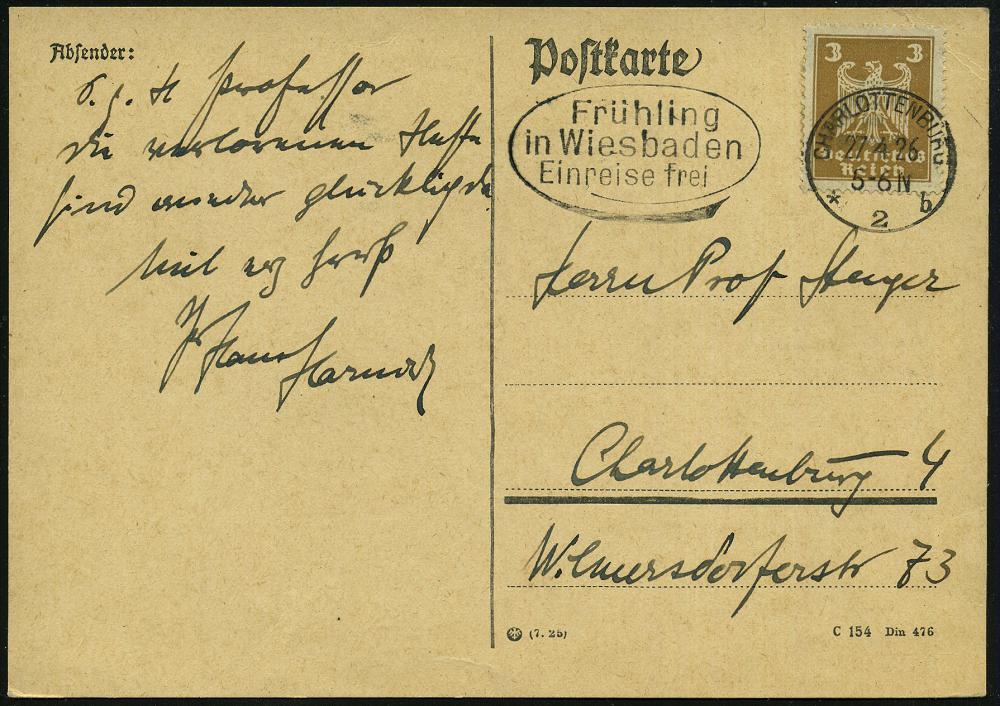 Absender:
S. g. H Professor
die verlorenen Hefte
sind wieder glücklich da
Mit erg
Hans
Harnack
Postkarte
Frühling
in Wiesbaden
Einreise frei
3 3
Deutsches
Reich
CHARLOTTENBURG
27.4.26
5-6 N
* 2 b
Herrn Prof
Charlottenburg 4
Wilmersdorferstr 73
(7. 25)
C 154 Din 476